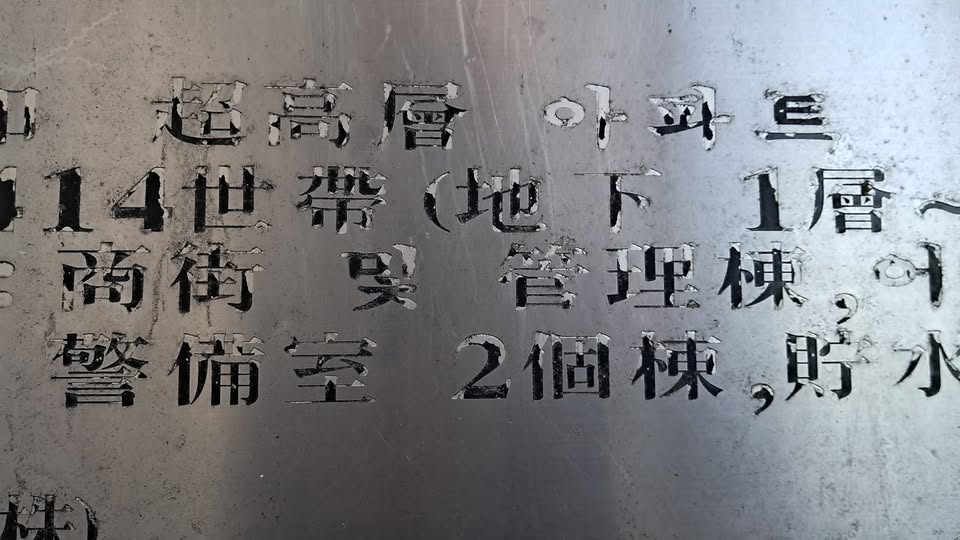 超高層 아파트
14世帶(地下 1層~
商街 및 管理棟,어
警備室 2個棟,貯水
株)